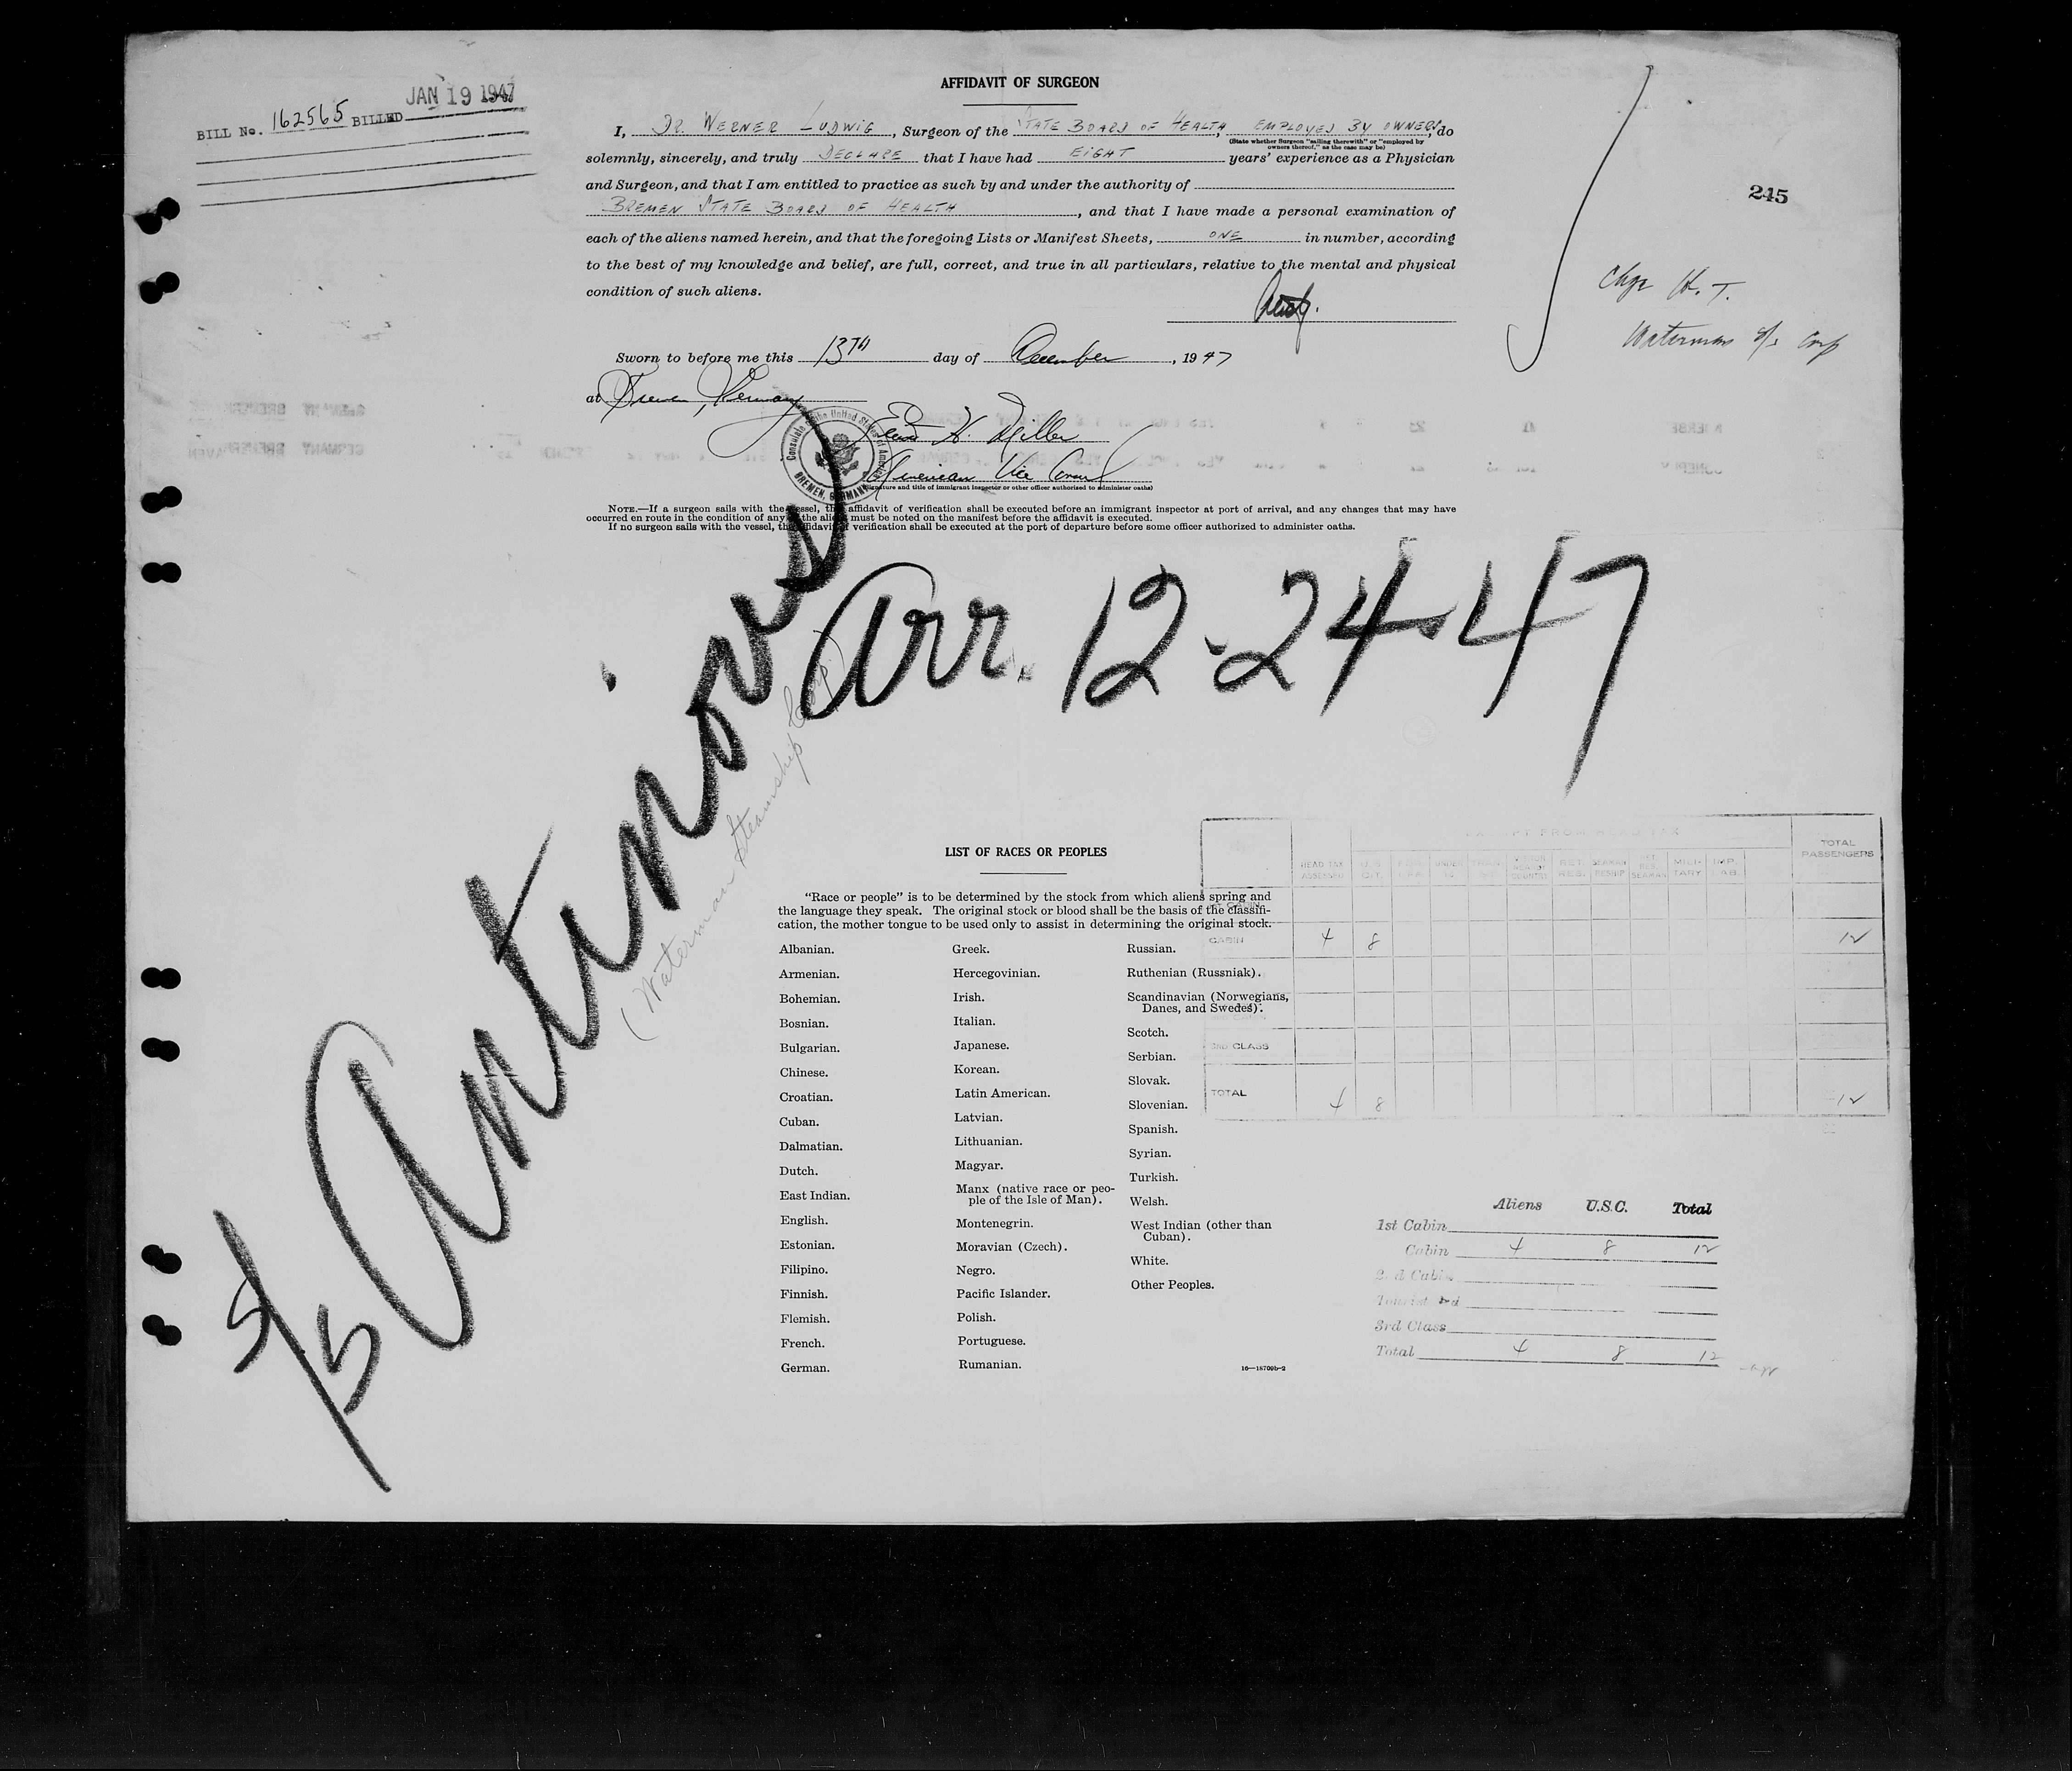 AFFIDAVIT OF SURGEON
JAN 19 1947
BILL No. 162565 BILLED
I, DR. WERNER LUDWIG, Surgeon of the STATE BOARD OF HEALTH, EMPLOYED BY OWNERS, do
(State whether Surgeon "sailing therewith" or "employed by
owners thereof," as the case may be)
solemnly, sincerely, and truly DECLARE that I have had EIGHT years' experience as a Physician
and Surgeon, and that I am entitled to practice as such by and under the authority of
BREMEN STATE BOARD OF HEALTH, and that I have made a personal examination of
each of the aliens named herein, and that the foregoing Lists or Manifest Sheets, ONE in number, according
to the best of my knowledge and belief, are full, correct, and true in all particulars, relative to the mental and physical
condition of such aliens.
245
Chge H. T.
Waterman S/S Corp
Sworn to before me this 13TH day of December, 1947
at Bremen, Germany
Consulate of the United States of America
BREMEN, GERMANY
H. Miller
American Vice Consul
(Signature and title of immigrant inspector or other officer authorized to administer oaths)
NOTE.—If a surgeon sails with the vessel, this affidavit of verification shall be executed before an immigrant inspector at port of arrival, and any changes that may have
occurred en route in the condition of any of the aliens must be noted on the manifest before the affidavit is executed.
If no surgeon sails with the vessel, the affidavit of verification shall be executed at the port of departure before some officer authorized to administer oaths.
Arr. 12-24-47
S/S Antinous
(Waterman Steamship Corp.)
LIST OF RACES OR PEOPLES
"Race or people" is to be determined by the stock from which aliens spring and
the language they speak. The original stock or blood shall be the basis of the classifi-
cation, the mother tongue to be used only to assist in determining the original stock.
Albanian.
Armenian.
Bohemian.
Bosnian.
Bulgarian.
Chinese.
Croatian.
Cuban.
Dalmatian.
Dutch.
East Indian.
English.
Estonian.
Filipino.
Finnish.
Flemish.
French.
German.
Greek.
Hercegovinian.
Irish.
Italian.
Japanese.
Korean.
Latin American.
Latvian.
Lithuanian.
Magyar.
Manx (native race or peo-
ple of the Isle of Man).
Montenegrin.
Moravian (Czech).
Negro.
Pacific Islander.
Polish.
Portuguese.
Rumanian.
Russian.
Ruthenian (Russniak).
Scandinavian (Norwegians,
Danes, and Swedes).
Scotch.
Serbian.
Slovak.
Slovenian.
Spanish.
Syrian.
Turkish.
Welsh.
West Indian (other than
Cuban).
White.
Other Peoples.
16—18709b-2
HEAD TAX ASSESSED
MILI-TARY
TOTAL PASSENGERS
CABIN 4 8 12
3RD CLASS
TOTAL 4 8 12
Aliens U.S.C. Total
1st Cabin
Cabin 4 8 12
2nd Cabin
Tourist 3rd
3rd Class
Total 4 8 12